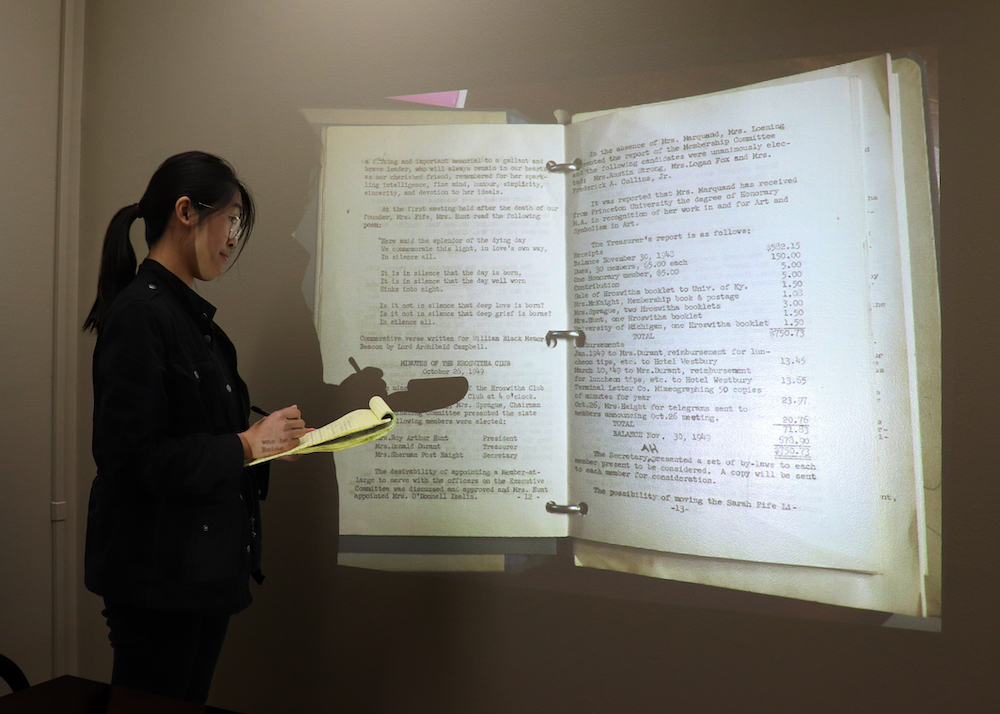 a fitting and important memorial to a gallant and
brave leader, who will always remain in our hearts
as our cherished friend, remembered for her spark-
ling intelligence, fine mind, humour, simplicity,
sincerity, and devotion to her ideals.
At the first meeting held after the death of our
founder, Mrs. Fife, Mrs. Hunt read the following
poem:
"Here amid the splendor of the dying day
We commemorate this light, in love's own way,
In silence all.
It is in silence that the day is born,
It is in silence that the day well worn
Sinks into night.
Is it not in silence that deep love is born?
Is it not in silence that deep grief is borne?
In silence all.
Commemorative verse written for William Black Memor
Beacon by Lord Archibald Campbell.
MINUTES OF THE HROSWITHA CLUB
October 26, 1949
of the Hroswitha Club
Club at 4 o'clock.
Mrs. Sprague, Chairman
Committee presented the slate
following members were elected:
Mrs.Roy Arthur Hunt President
Mrs.Donald Durant Treasurer
Mrs.Sherman Post Haight Secretary
The desirability of appointing a Member-at-
Large to serve with the officers on the Executive
Committee was discussed and approved and Mrs. Hunt
appointed Mrs. O'Donnell Iselin.
- 12 -
In the absence of Mrs. Marquand, Mrs. Loening
presented the report of the Membership Committee
and the following candidates were unanimously elec-
ted: Mrs.Austin Strong, Mrs.Logan Fox and Mrs.
Frederick A. Collins, Jr.
It was reported that Mrs. Marquand has received
from Princeton University the degree of Honorary
M.A. in recognition of her work in and for Art and
Symbolism in Art.
The Treasurer's report is as follows:
Receipts
Balance November 30, 1948 $582.15
Dues, 30 members, $5.00 each 150.00
One Honorary member, $5.00 5.00
Contribution 5.00
Sale of Hroswitha booklet to Univ. of Ky. 1.50
Mrs.McKnight, Membership book & postage 1.08
Mrs.Sprague, two Hroswitha booklets 3.00
Mrs.Hunt, one Hroswitha booklet 1.50
University of Michigan, one Hroswitha booklet 1.50
TOTAL $750.73
Disbursements
Jan.1949 to Mrs.Durant reimbursement for lun-
cheon tips, etc. to Hotel Westbury 13.45
March 10,'49 to Mrs.Durant, reimbursement
for luncheon tips, etc. to Hotel Westbury 13.65
Terminal Letter Co. Mimeographing 50 copies
of minutes for year 23.97
Oct.26, Mrs.Haight for telegrams sent to
members announcing Oct.26 meeting. 20.76
TOTAL 71.83
BALANCE Nov. 30, 1949 678.90
$750.73
AH
The Secretary presented a set of by-laws to each
member present to be considered. A copy will be sent
to each member for consideration.
The possibility of moving the Sarah Fife Li-
-13-